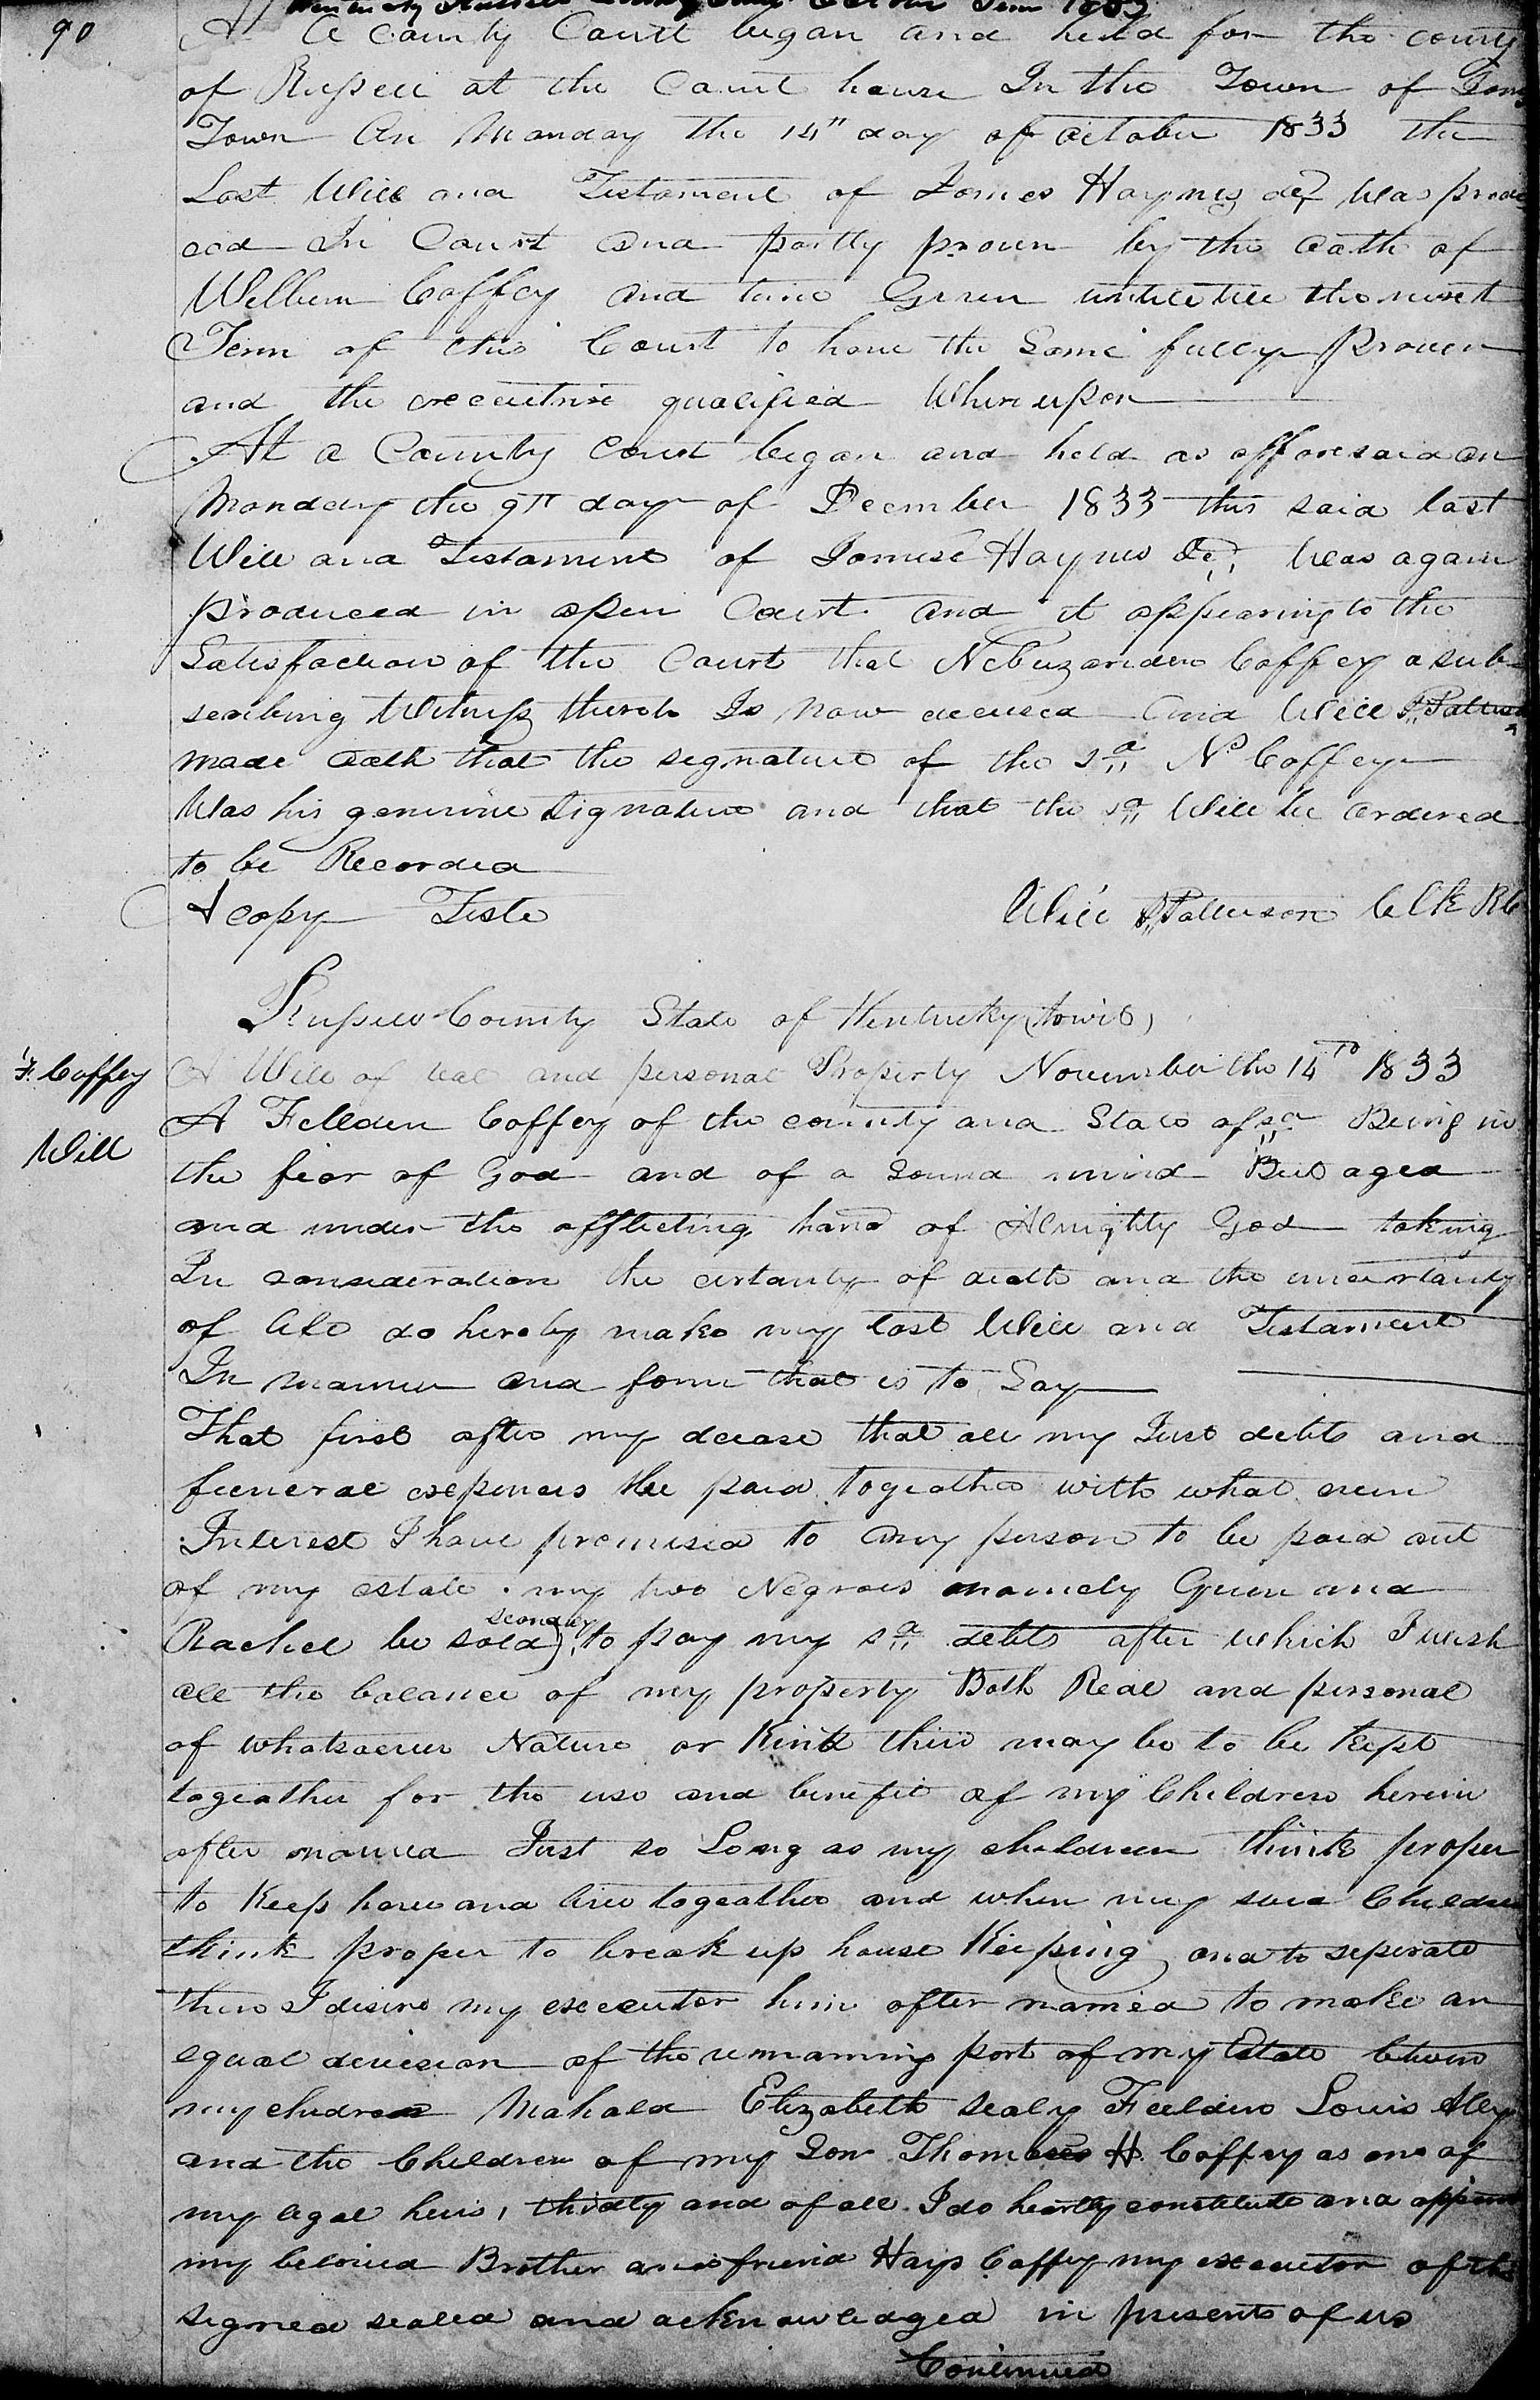 90
Kentucky Russell County October Term 1833
At A County Court began and held for the county
of Russell at the Court house In the Town of James
Town On Monday the 14th day of October 1833 the
Last Will and Testament of James Haynes decd Was produ
ced In Court and partly proven by the Oath of
Wilburn Coffey and time Given untill the next
Term of this Court to have the Same fully Proven
and the executrix qualified Whereupon
At a County Court began and held as afforesaid on
Monday the 9th day of December 1833 this said last
Will and Testament of James Haynes Decd Was again
produced in open Court and it appearing to the
Satisfaction of the Court that Nebuzardan Coffey a sub
scribing Witness thereto Is now deceased and Will S Patterson
made Oath that the signature of the sd N Coffey
Was his genuine Signature and that the sd Will be Ordered
to be Recorded
A copy Teste Will S Patterson Clk RC
Russell County State of Kentucky (towit)
F. Coffey
Will
A Will of real and personal Property November the 14th 1833
A Fellden Coffey of the county and State afsd Being in
the fear of God and of a Sound mind But aged
and under the afflicting hand of Almighty God taking
In consideration the certanty of death and the uncertanty
of life do hereby make my last Will and Testament
In manner and form that is to Say
That first after my decease that all my Just debts and
funeral expences be paid togeather with what ever
Interest I have promised to any person to be paid out
of my estate my two Negroes namely Green and
Rachel be sold secondly to pay my sd debts after which I wish
all the balance of my property Both Real and personal
of whatsoever Nature or Kind their may be to be kept
togeather for the use and benefit of my Children herein
after named Just so Long as my children think proper
to Keep house and live togeather and when my said Children
think proper to break up house Keeping and to seperate
then I desire my executor hear after named to make an
equal devision of the remaining part of my Estate between
my children Mahala Elizabeth Sealy Feelden Louis Ally
and the Children of my Son Thomas H. Coffey as one of
my legal heirs, thirdly and of all I do heartly constitute and appoint
my beloved Brother and friend Hays Coffey my executor of this
signed sealed and acknowledged in presents of us
Continued